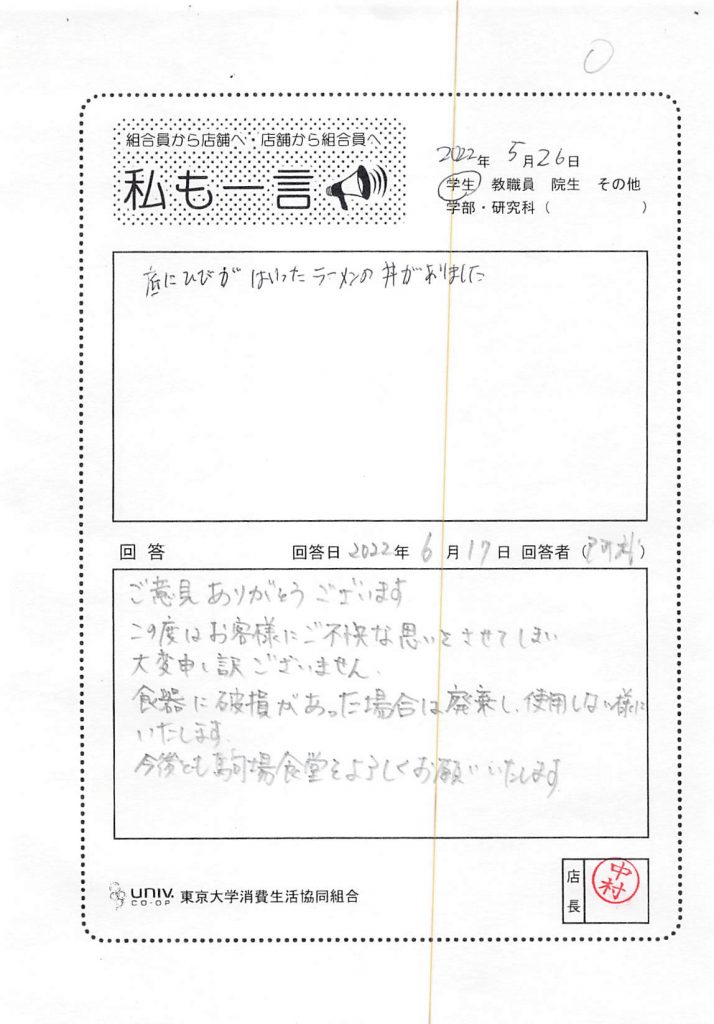 組合員から店舗へ・店舗から組合員へ
私も一言
2022年 5月26日
学生 教職員 院生 その他
学部・研究科（ ）
底にひびがはいったラーメンの丼がありました
回答 回答日 2022年 6月17日 回答者（ ）
ご意見ありがとうございます
この度はお客様にご不快な思いをさせてしまい
大変申し訳ございません、
食器に破損があった場合は廃棄し、使用しない様に
いたします。
今後とも駒場食堂をよろしくお願いいたします
UNIV. CO-OP 東京大学消費生活協同組合
店長
中村